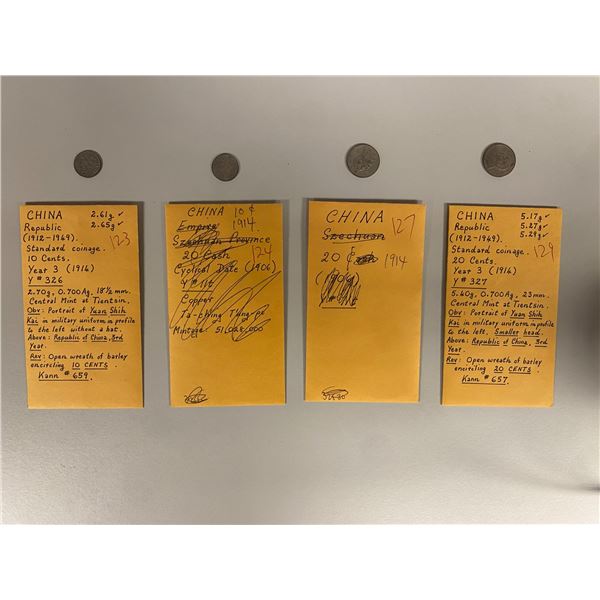 CHINA 2.61g ✓
Republic 2.65g ✓
(1912-1969). 123
Standard coinage.
10 Cents.
Year 3 (1916)
Y # 326
2.70g, 0.700Ag, 18½ mm.
Central Mint at Tientsin.
Obv: Portrait of Yuan Shih
Kai in military uniform in profile
to the left without a hat.
Above: Republic of China, 3rd
Year.
Rev: Open wreath of barley
encircling 10 CENTS.
Kann # 659.
CHINA 10 ¢
Empire 1914.
Szechuan Province
20 Cash 124
Cyclical Date (1906)
Y # 11t
Copper
Ta-ching Tung-pi
Mintage 51,028,000
CHINA
Szechuan 127
20 ¢ 1914
CHINA 5.17g ✓
Republic 5.27g ✓
(1912-1969). 5.29g ✓
Standard coinage. 129
20 Cents.
Year 3 (1916)
Y # 327
5.40g, 0.700Ag, 23 mm.
Central Mint at Tientsin.
Obv: Portrait of Yuan Shih
Kai in military uniform in profile
to the left. Smaller head.
Above: Republic of China, 3rd
Year.
Rev: Open wreath of barley
encircling 20 CENTS.
Kann # 657.